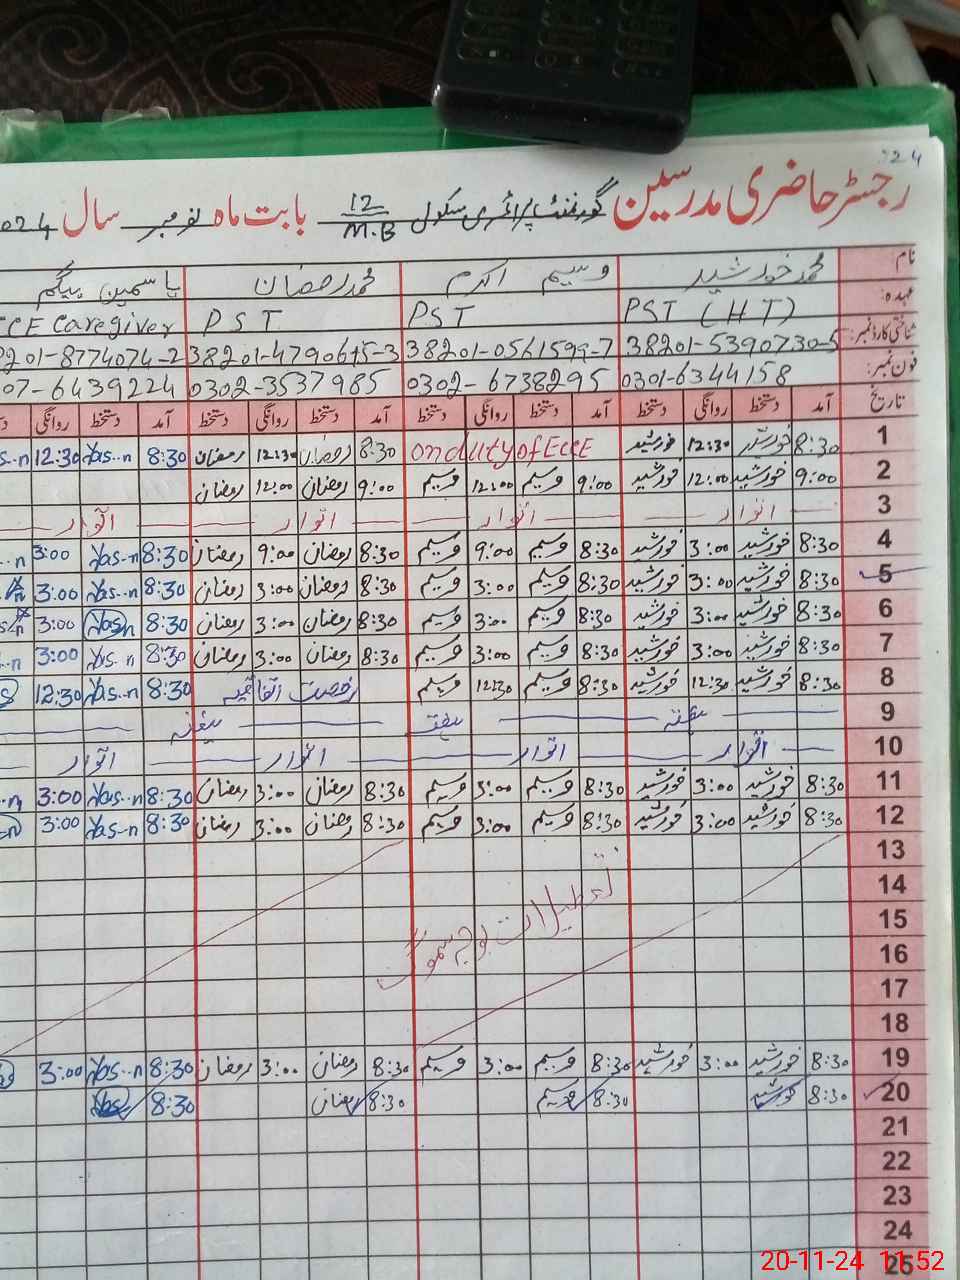 24
رجسٹر حاضری مدرسین گورنمنٹ پرائمری سکول 12/M.B بابت ماہ نومبر سال 024
نام محمد خورشید وسیم اکرم محمد رمضان یاسمین بیگم
عہدہ: PST (HT) PST PST CCE Caregiver
شناختی کارڈ نمبر: 38201-5390730-5 38201-0561599-7 38201-4790615-3 8201-8774074-2
فون نمبر: 0301-6344158 0302-6738295 0302-3537985 07-6439224
تاریخ آمد دستخط روانگی دستخط آمد دستخط روانگی دستخط آمد دستخط روانگی دستخط آمد دستخط روانگی
1 8:30 خورشید 12:30 خورشید on duty of ECCE 8:30 رمضان 12:30 رمضان 8:30 Yas..n 12:30 s..n
2 9:00 خورشید 12:00 خورشید 9:00 وسیم 12:00 وسیم 9:00 رمضان 12:00 رمضان
3 اتوار اتوار اتوار اتوار
4 8:30 خورشید 3:00 خورشید 8:30 وسیم 9:00 وسیم 8:30 رمضان 9:00 رمضان 8:30 Yas-n 3:00 ..n
5 8:30 خورشید 3:00 خورشید 8:30 وسیم 3:00 وسیم 8:30 رمضان 3:00 رمضان 8:30 Yas-n 3:00
6 8:30 خورشید 3:00 خورشید 8:30 وسیم 3:00 وسیم 8:30 رمضان 3:00 رمضان 8:30 Yasn 3:00
7 8:30 خورشید 3:00 خورشید 8:30 وسیم 3:00 وسیم 8:30 رمضان 3:00 رمضان 8:30 Yas.n 3:00 ..n
8 8:30 خورشید 12:30 خورشید 8:30 وسیم 12:30 وسیم رخصت اتفاقیہ 8:30 Yas..n 12:30
9 ہفتہ ہفتہ ہفتہ
10 اتوار اتوار اتوار اتوار
11 8:30 خورشید 3:00 خورشید 8:30 وسیم 3:00 وسیم 8:30 رمضان 3:00 رمضان 8:30 Yas..n 3:00 ..n
12 8:30 خورشید 3:00 خورشید 8:30 وسیم 3:00 وسیم 8:30 رمضان 3:00 رمضان 8:30 Yas..n 3:00
13
14
تعطیلات بوجہ سموگ
15
16
17
18
19 8:30 خورشید 3:00 خورشید 8:30 وسیم 3:00 وسیم 8:30 رمضان 3:00 رمضان 8:30 Yas..n 3:00
20 8:30 خورشید 8:30 وسیم 8:30 رمضان 8:30 Yas
21
22
23
24
25
20-11-24 11:52